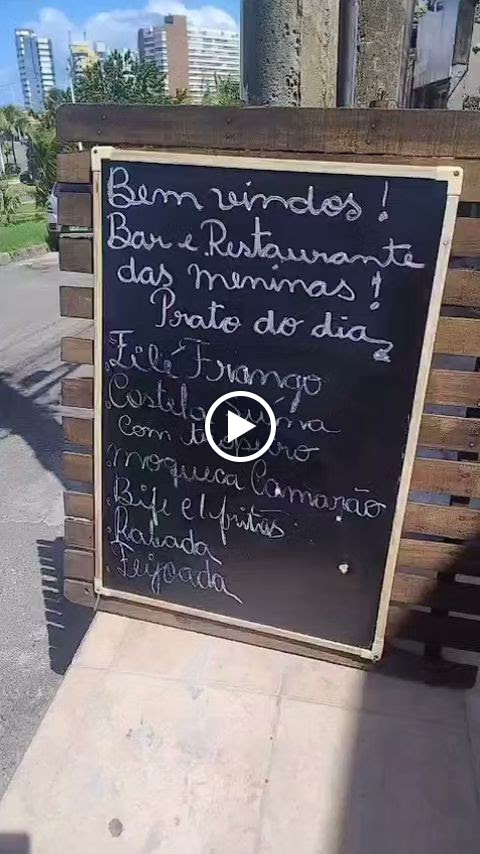 Bem vindos!
Bar e Restaurante
das meninas!
Prato do dia
Filé Frango
Costela
com
moqueca Camarão
Bife c/fritas
Rabada
Feijoada